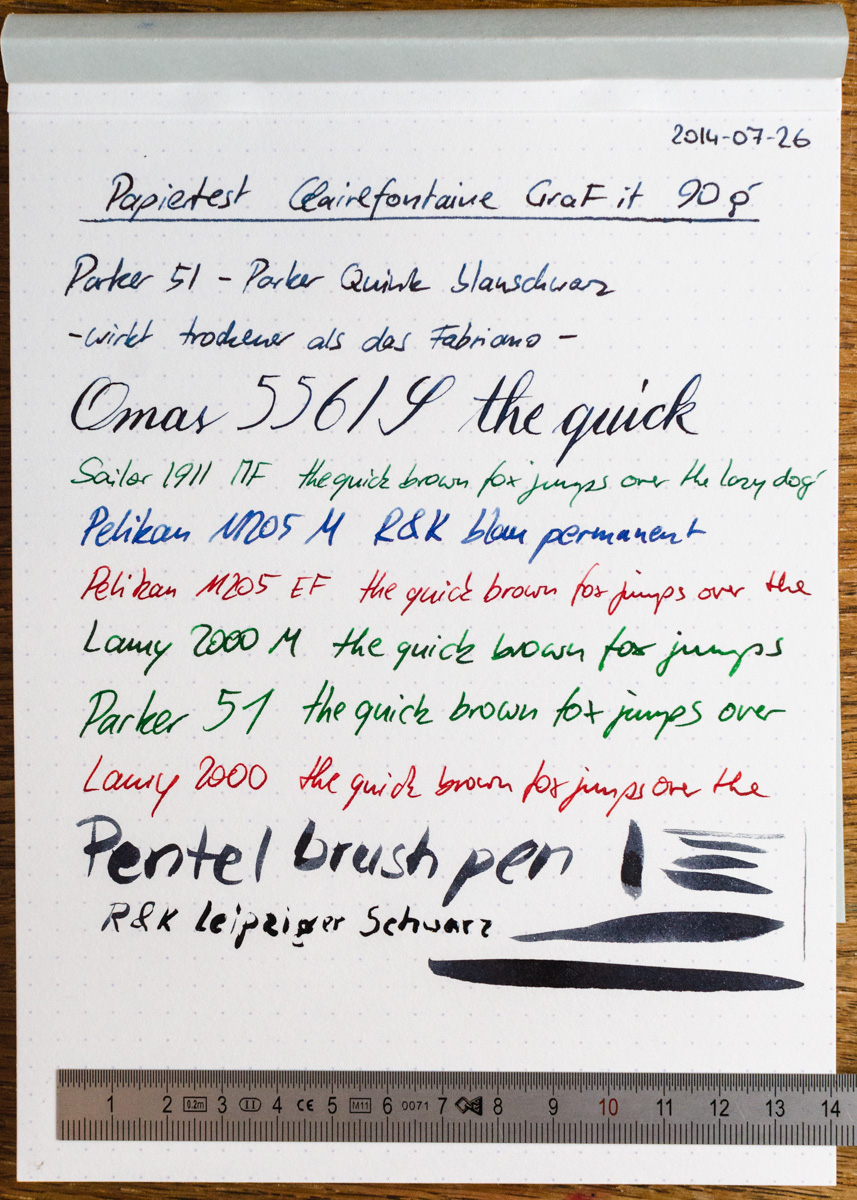 2014-07-26
Papiertest Clairefontaine GraF it 90 g
Parker 51 - Parker Quink blauschwarz
- wirkt trockener als das Fabriano -
Omas 556/S the quick
Sailor 1911 MF the quick brown fox jumps over the lazy dog
Pelikan M205 M R&K blau permanent
Pelikan M205 EF the quick brown fox jumps over the
Lamy 2000 M the quick brown fox jumps
Parker 51 the quick brown fox jumps over
Lamy 2000 the quick brown fox jumps over the
Pentel brush pen
R&K Leipziger Schwarz
1 2 0.2m 3 II 4 CE 5 M11 6 0071 7 8 9 10 11 12 13 14